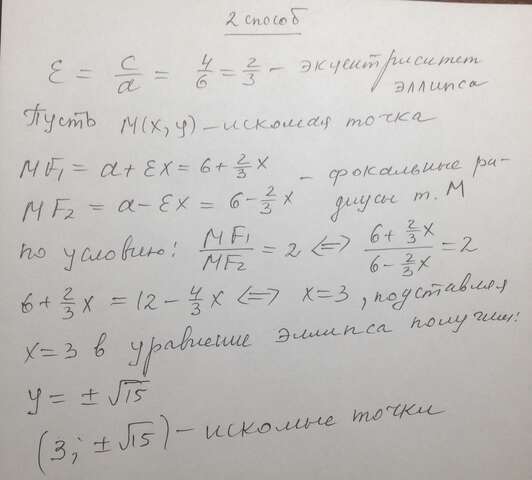 2 способ
ε = c/a = 4/6 = 2/3 – эксцентриситет
эллипса
Пусть M(x, y) – искомая точка
MF₁ = a + εx = 6 + 2/3 x
MF₂ = a – εx = 6 – 2/3 x – фокальные ра-
диусы т. M
по условию: MF₁/MF₂ = 2 <=> (6 + 2/3 x)/(6 – 2/3 x) = 2
6 + 2/3 x = 12 – 4/3 x <=> x = 3, подставляя
x = 3 в уравнение эллипса получим:
y = ± √15
(3; ± √15) – искомые точки